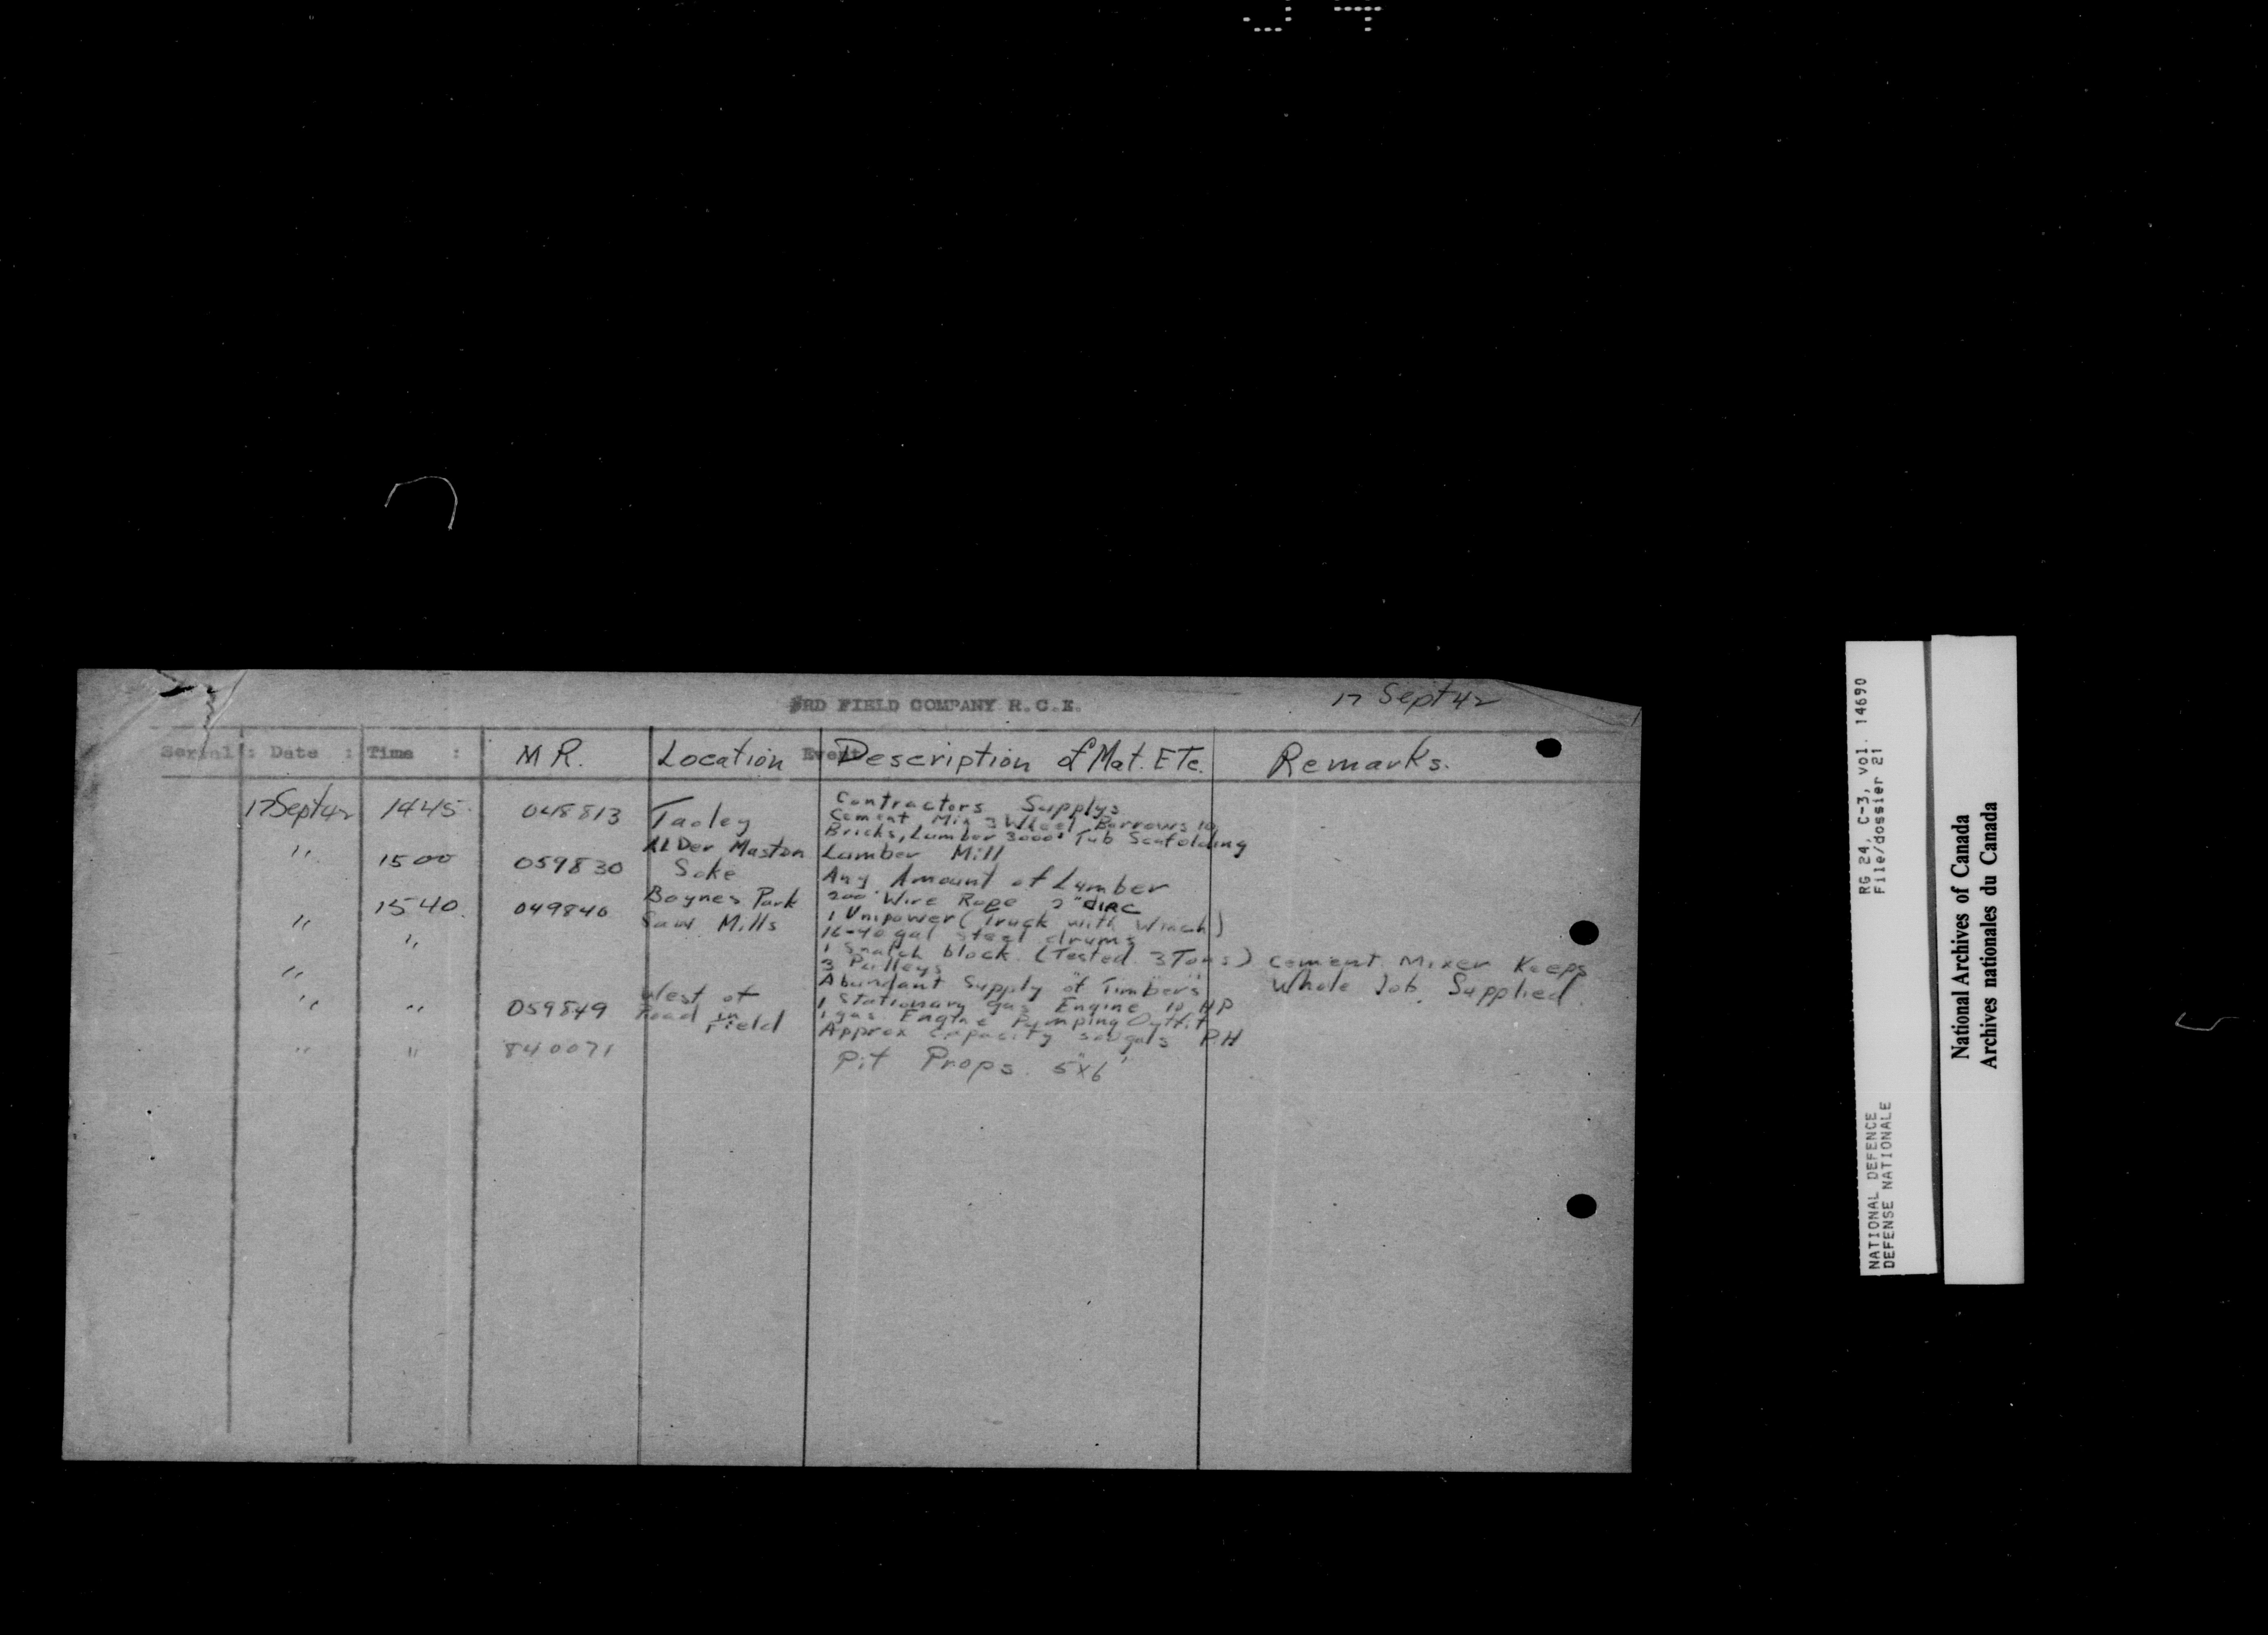 3RD FIELD COMPANY R.C.E. 17 Sept 42
Serial : Date : Time : M R. Location Event Description of Mat. ETc. Remarks.
17 Sept 42 1445 048813 Tadley Contractors Supplys
Cement Mix 3 Wheel Barrows 10
Bricks, Lumber 3000' Tub Scafolding
" 1500 059830 ALDer Maston Lumber Mill
Soke Any Amount of Lumber
1540. 049840 Boynes Park 200' Wire Rope 2" dIRC
" Saw Mills 1 Unipower (Truck with Winch)
" 16-40 gal steel drums
1 Snatch block (Tested 3 Tons) Cement Mixer Keeps
" 3 Pulleys Whole Job Supplied.
Abundant Supply of Timbers
" " 059849 West of 1 Stationary gas Engine 10 HP
Road in 1 gas Engine Pumping Outfit
Field Approx Capacity gals PH
" " 840071 Pit Props 5"x6'
RG 24, C-3, vol. 14690
File/dossier 21
NATIONAL DEFENCE
DEFENSE NATIONALE
National Archives of Canada
Archives nationales du Canada